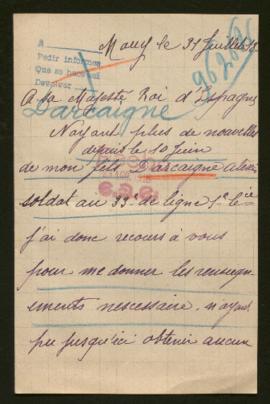 A
Pedir informes
Que se
Devolver
Mouy le 31 Juillet
A Sa Majesté Roi d'Espagne
Darcaigne
N'ayant plus de nouvelles
depuis le 10 Juin
de mon fils Darcaigne alexis
soldat au 33e de ligne 1e Cie
j'ai donc recours à vous
pour me donner les renseign-
ements nescessaire. n'ayant
pu jusqu'ici obtenir aucun